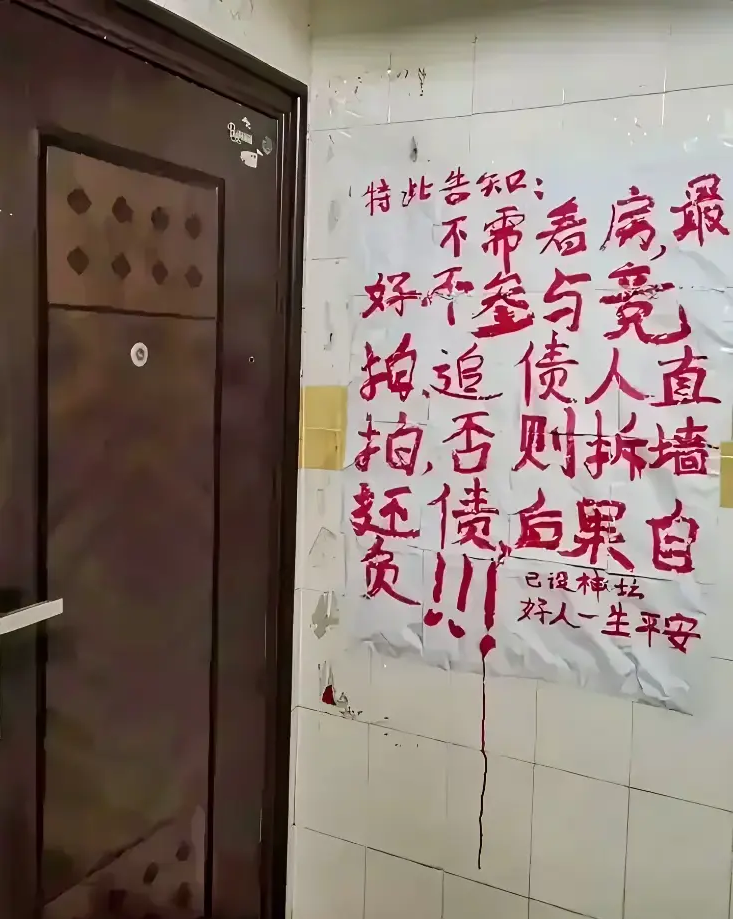 特此告知:
不需看房,最
好不参与竞
拍,追债人直
拍,否则拆墙
还债,后果自
负!!!
已设神坛
好人一生平安